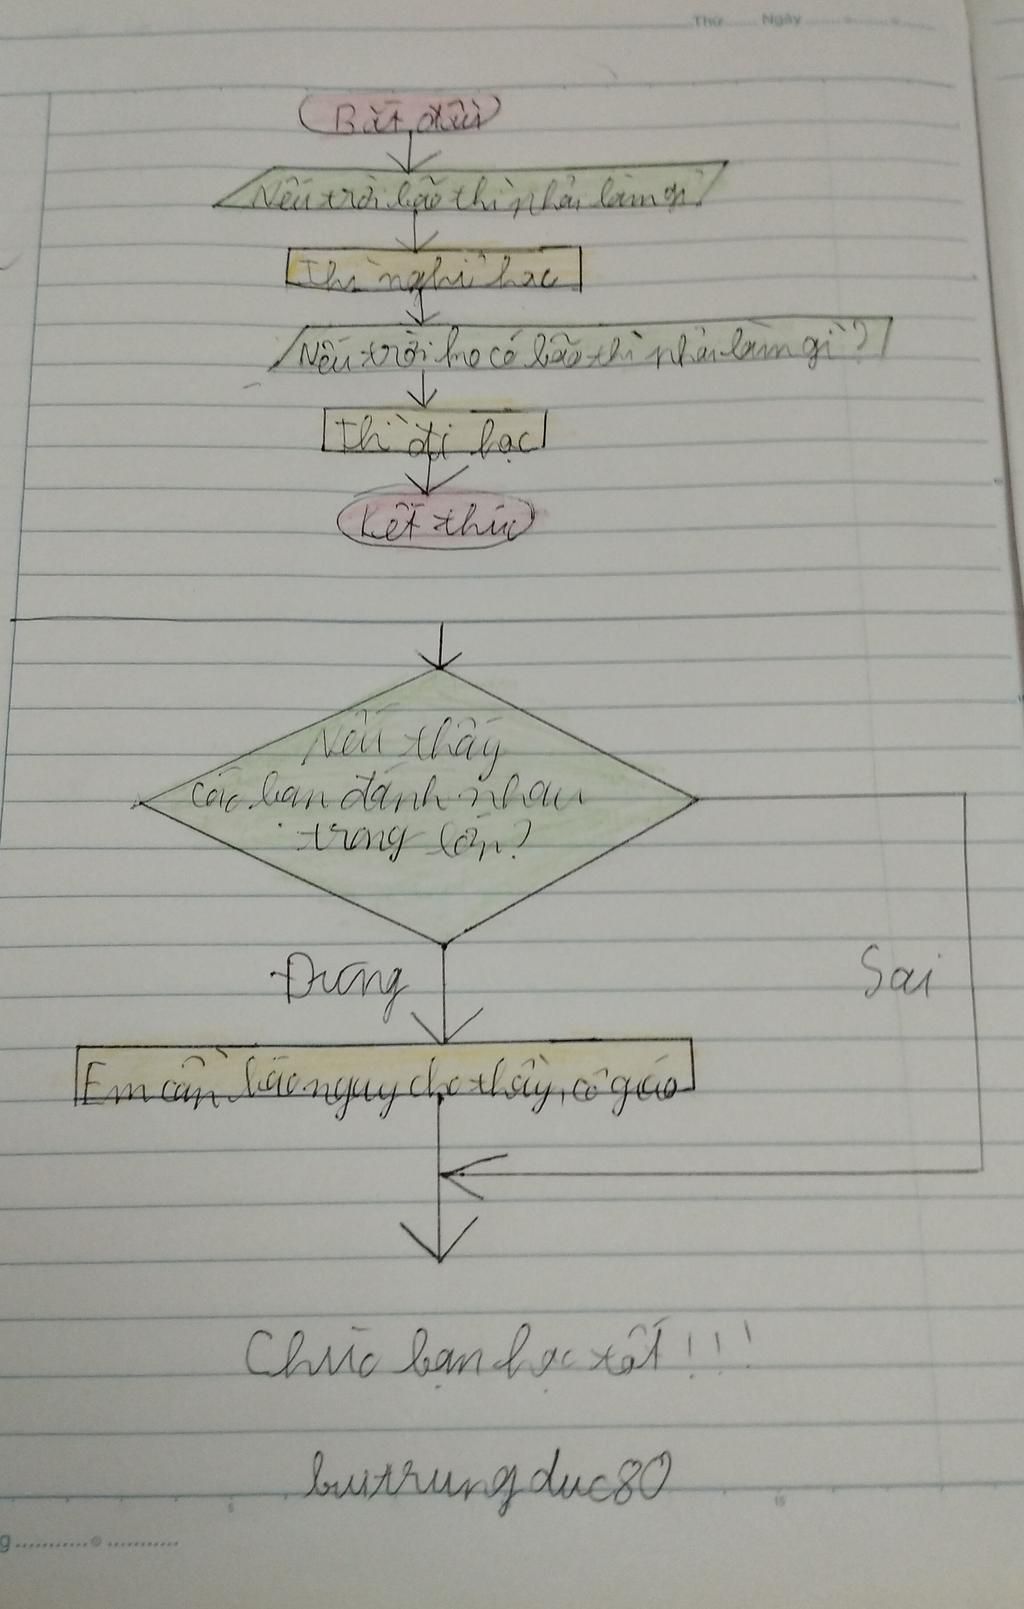 Thứ Ngày
Bắt đầu
Nếu trời bão thì phải làm gì?
Thì nghỉ học
Nếu trời ho có bão thì phải làm gì?
Thì đi học
Kết thúc
Nếu thấy
các bạn đánh nhau
trong lớp?
Đúng
Sai
Em cần báo nguy cho thầy, cô giáo
Chúc bạn học tốt!!!
butrungduc80
5
15
g